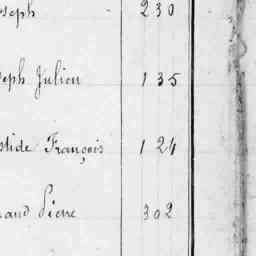 oseph - 230
seph Julien 135
stide François 124
aud Pierre 302